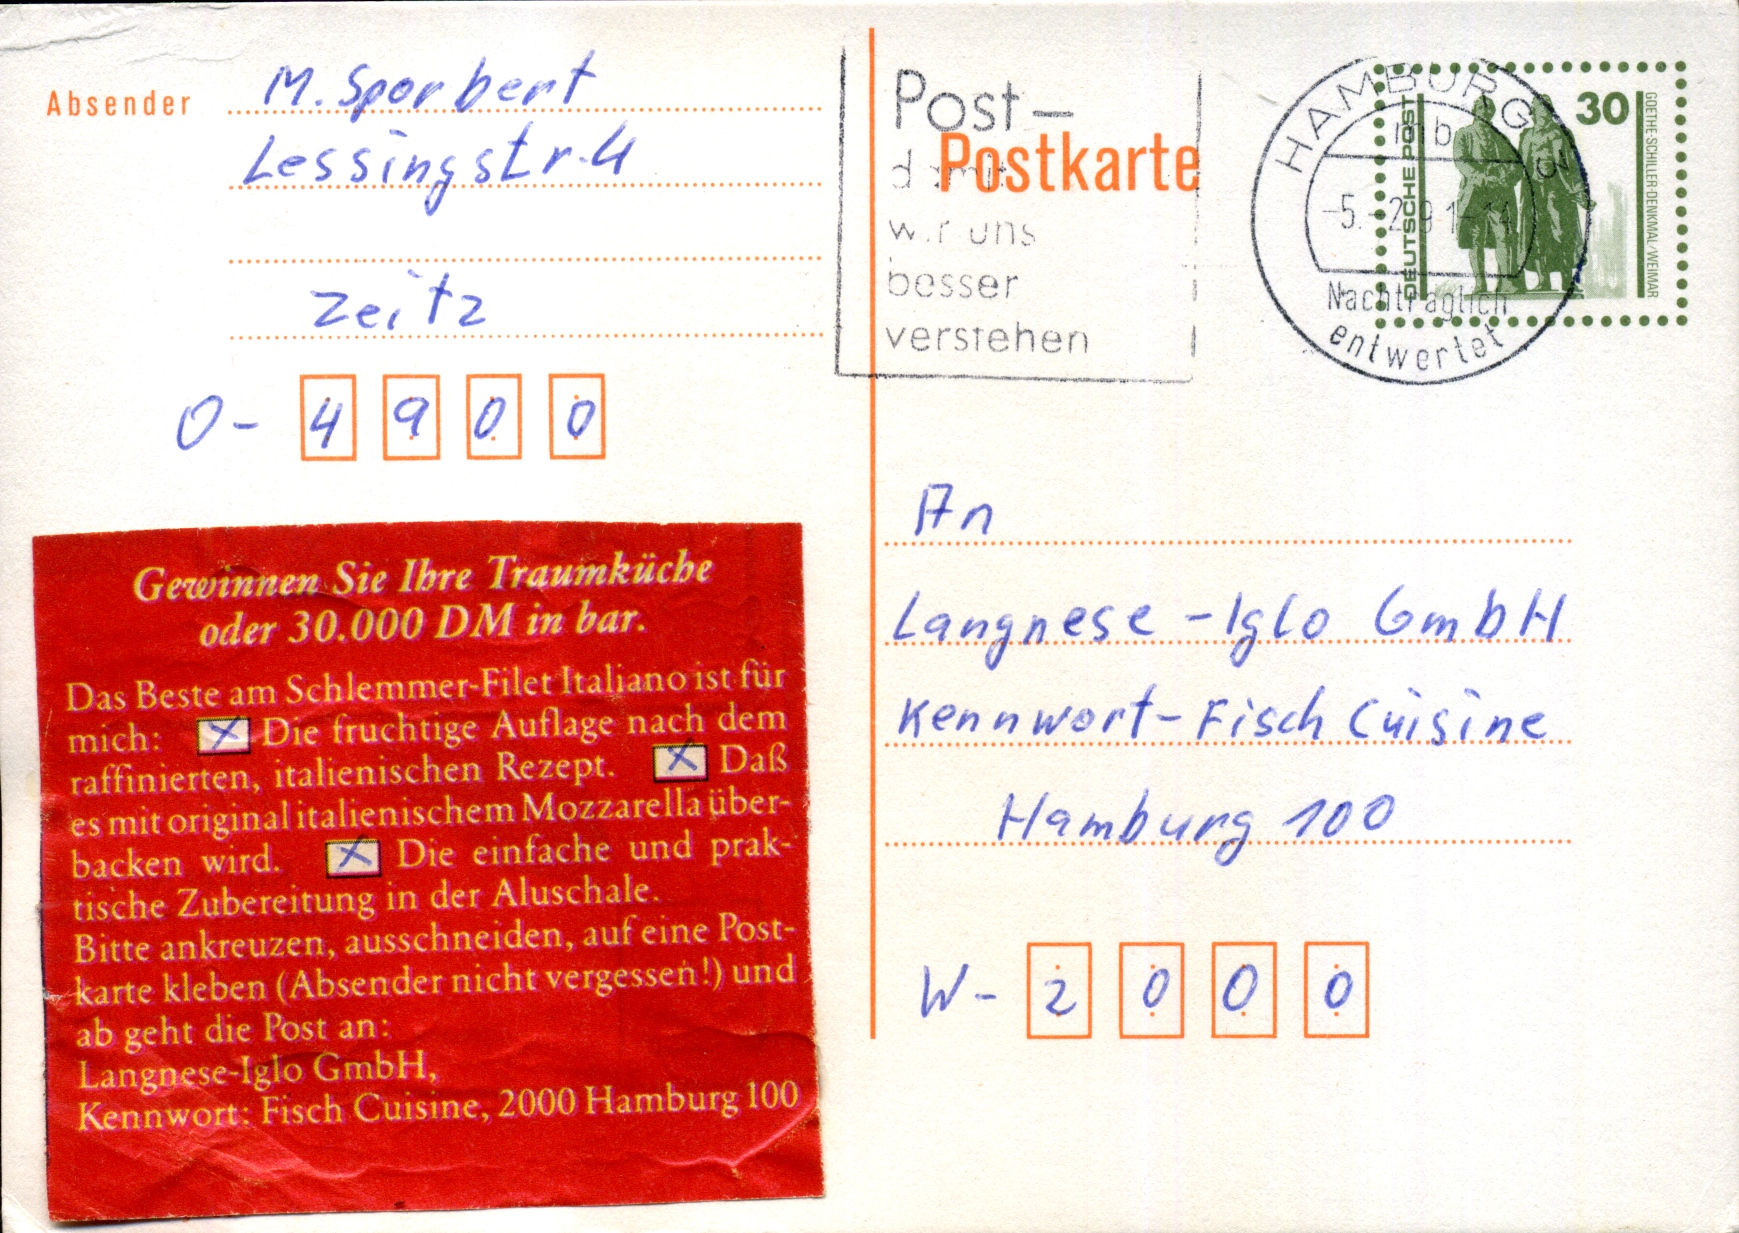 Absender M. Sporbert
Lessingstr. 4
Zeitz
O- 4900
Post-
Postkarte
damit
wir uns
besser
verstehen
HAMBURG
mb
-5.-2.91-14
Nachträglich
entwertet
DEUTSCHE POST
30
GOETHE-SCHILLER-DENKMAL/WEIMAR
An
Langnese-Iglo GmbH
Kennwort-Fisch Cuisine
Hamburg 100
W- 2000
Gewinnen Sie Ihre Traumküche
oder 30.000 DM in bar.
Das Beste am Schlemmer-Filet Italiano ist für
mich: Die fruchtige Auflage nach dem
raffinierten, italienischen Rezept. Daß
es mit original italienischem Mozzarella über-
backen wird. Die einfache und prak-
tische Zubereitung in der Aluschale.
Bitte ankreuzen, ausschneiden, auf eine Post-
karte kleben (Absender nicht vergessen!) und
ab geht die Post an:
Langnese-Iglo GmbH,
Kennwort: Fisch Cuisine, 2000 Hamburg 100